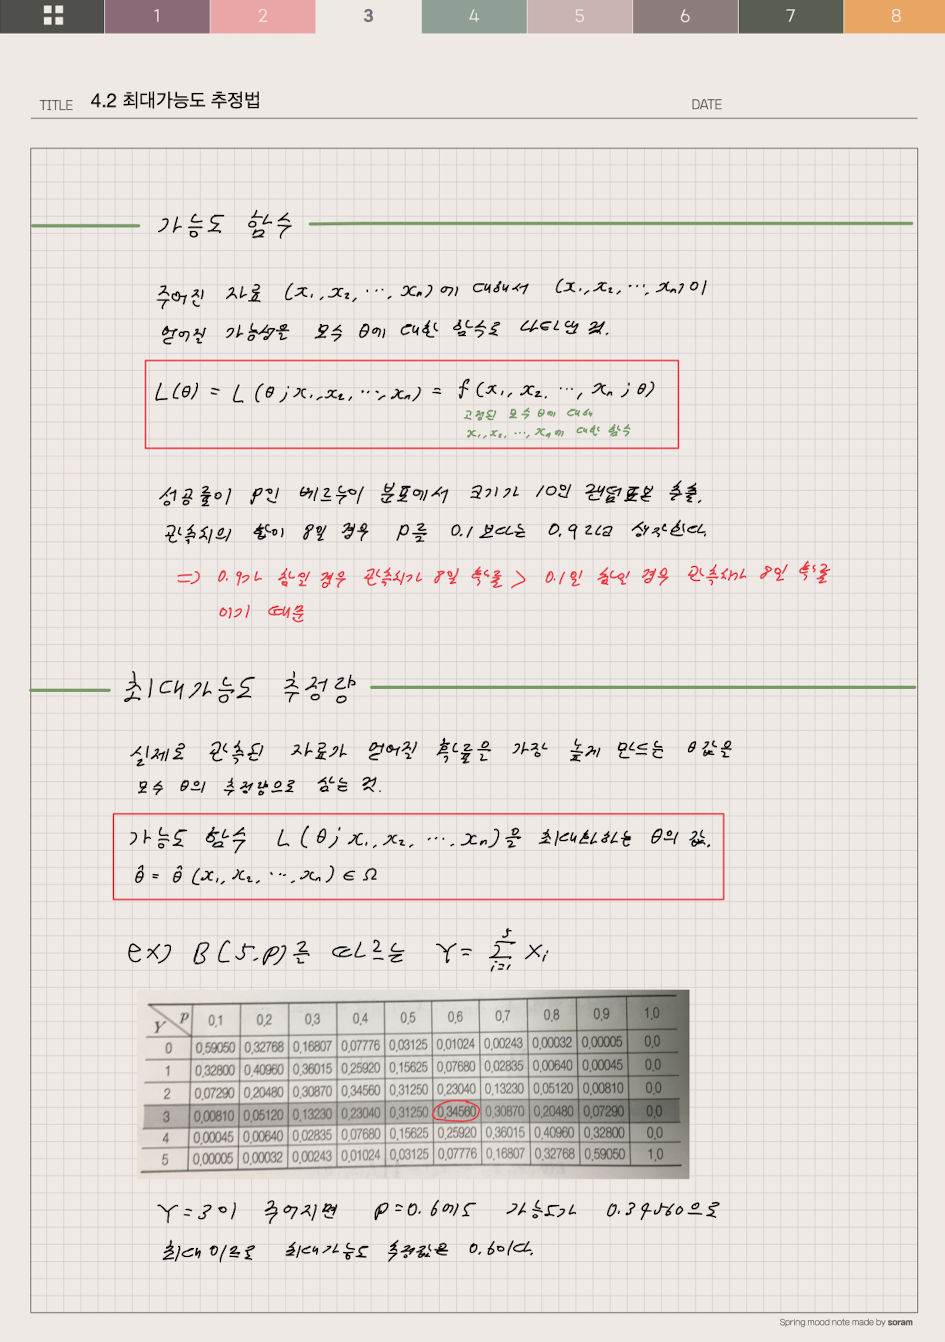 1 2 3 4 5 6 7 8
TITLE 4.2 최대가능도 추정법 DATE
가능도 함수
주어진 자료 (x₁, x₂, ⋯, xₙ)에 대해서 (x₁, x₂, ⋯, xₙ)이
얻어질 가능성을 모수 θ에 대한 함수로 나타낸 것.
L(θ) = L(θ; x₁, x₂, ⋯, xₙ) = f(x₁, x₂, ⋯, xₙ; θ)
고정된 모수 θ에 대해
x₁, x₂, ⋯, xₙ에 대한 함수
성공률이 p인 베르누이 분포에서 크기가 10인 랜덤표본 추출.
관측치의 합이 8일 경우 p를 0.1 보다는 0.9라고 생각한다.
⇒ 0.9가 참인 경우 관측치가 8일 확률 > 0.1일 참인 경우 관측치가 8일 확률
이기 때문
최대가능도 추정량
실제로 관측된 자료가 얻어질 확률을 가장 높게 만드는 θ값을
모수 θ의 추정량으로 삼는 것.
가능도 함수 L(θ; x₁, x₂, ⋯, xₙ)을 최대화하는 θ의 값.
θ̂ = θ̂(x₁, x₂, ⋯, xₙ) ∈ Ω
ex) B(5.p)를 따르는 Y = ∑ᵢ₌₁⁵ Xᵢ
Y P 0,1 0,2 0,3 0,4 0,5 0,6 0,7 0,8 0,9 1,0
0 0,59050 0,32768 0,16807 0,07776 0,03125 0,01024 0,00243 0,00032 0,00005 0,0
1 0,32800 0,40960 0,36015 0,25920 0,15625 0,07680 0,02835 0,00640 0,00045 0,0
2 0,07290 0,20480 0,30870 0,34560 0,31250 0,23040 0,13230 0,05120 0,00810 0,0
3 0,00810 0,05120 0,13230 0,23040 0,31250 0,34560 0,30870 0,20480 0,07290 0,0
4 0,00045 0,00640 0,02835 0,07680 0,15625 0,25920 0,36015 0,40960 0,32800 0,0
5 0,00005 0,00032 0,00243 0,01024 0,03125 0,07776 0,16807 0,32768 0,59050 1,0
Y=3이 주어지면 p=0.6에도 가능도가 0.34560으로
최대이므로 최대가능도 추정값은 0.6이다.
Spring mood note made by soram